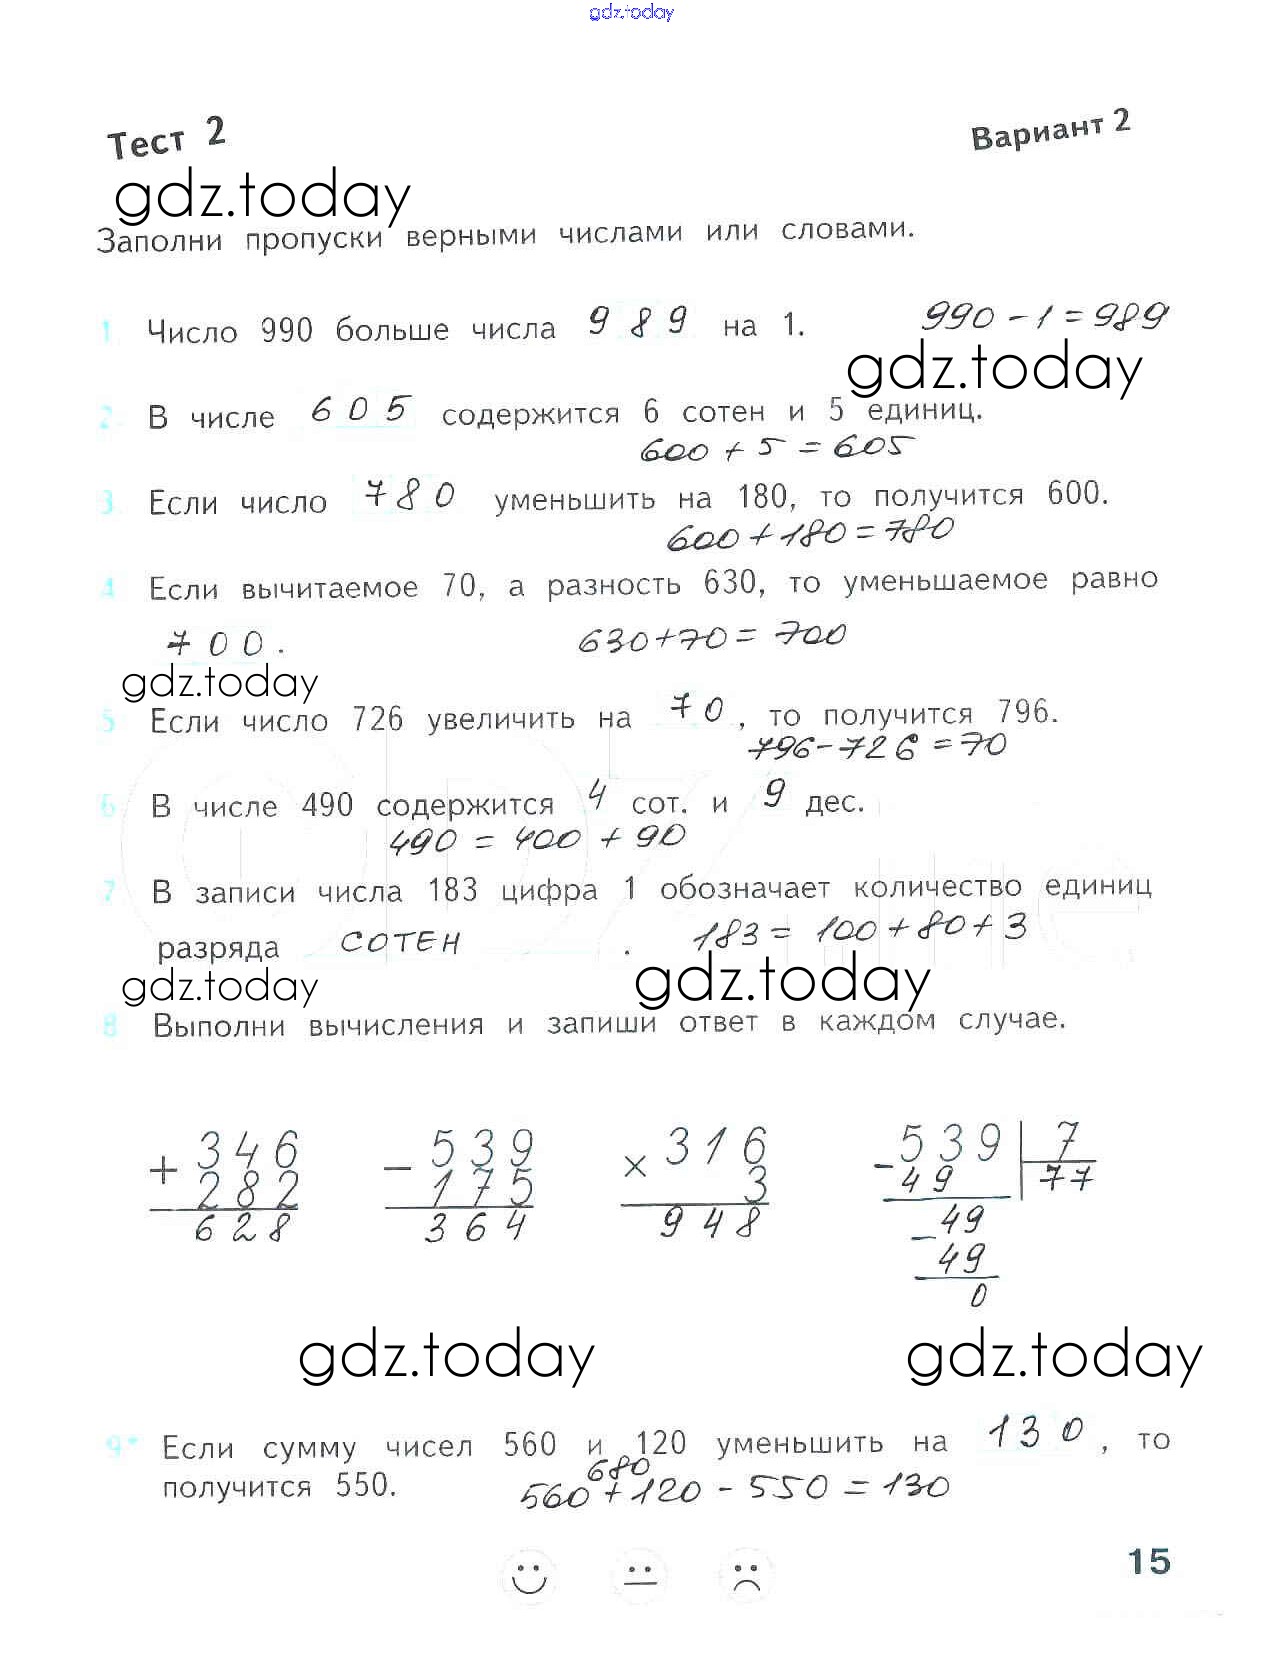 gdz.today
Тест 2 Вариант 2
gdz.today
Заполни пропуски верными числами или словами.
1 Число 990 больше числа 989 на 1. 990 - 1 = 989
gdz.today
2 В числе 605 содержится 6 сотен и 5 единиц.
600 + 5 = 605
3 Если число 780 уменьшить на 180, то получится 600.
600 + 180 = 780
4 Если вычитаемое 70, а разность 630, то уменьшаемое равно
700. 630 + 70 = 700
gdz.today
5 Если число 726 увеличить на 70, то получится 796.
796 - 726 = 70
6 В числе 490 содержится 4 сот. и 9 дес.
490 = 400 + 90
7 В записи числа 183 цифра 1 обозначает количество единиц
разряда СОТЕН . 183 = 100 + 80 + 3
gdz.today gdz.today
8 Выполни вычисления и запиши ответ в каждом случае.
+ 346 - 539 × 316 - 539 | 7
282 175 3 49 77
628 364 948 49
- 49
0
gdz.today gdz.today
9* Если сумму чисел 560 и 120 уменьшить на 130, то
получится 550. 680
560 + 120 - 550 = 130
15